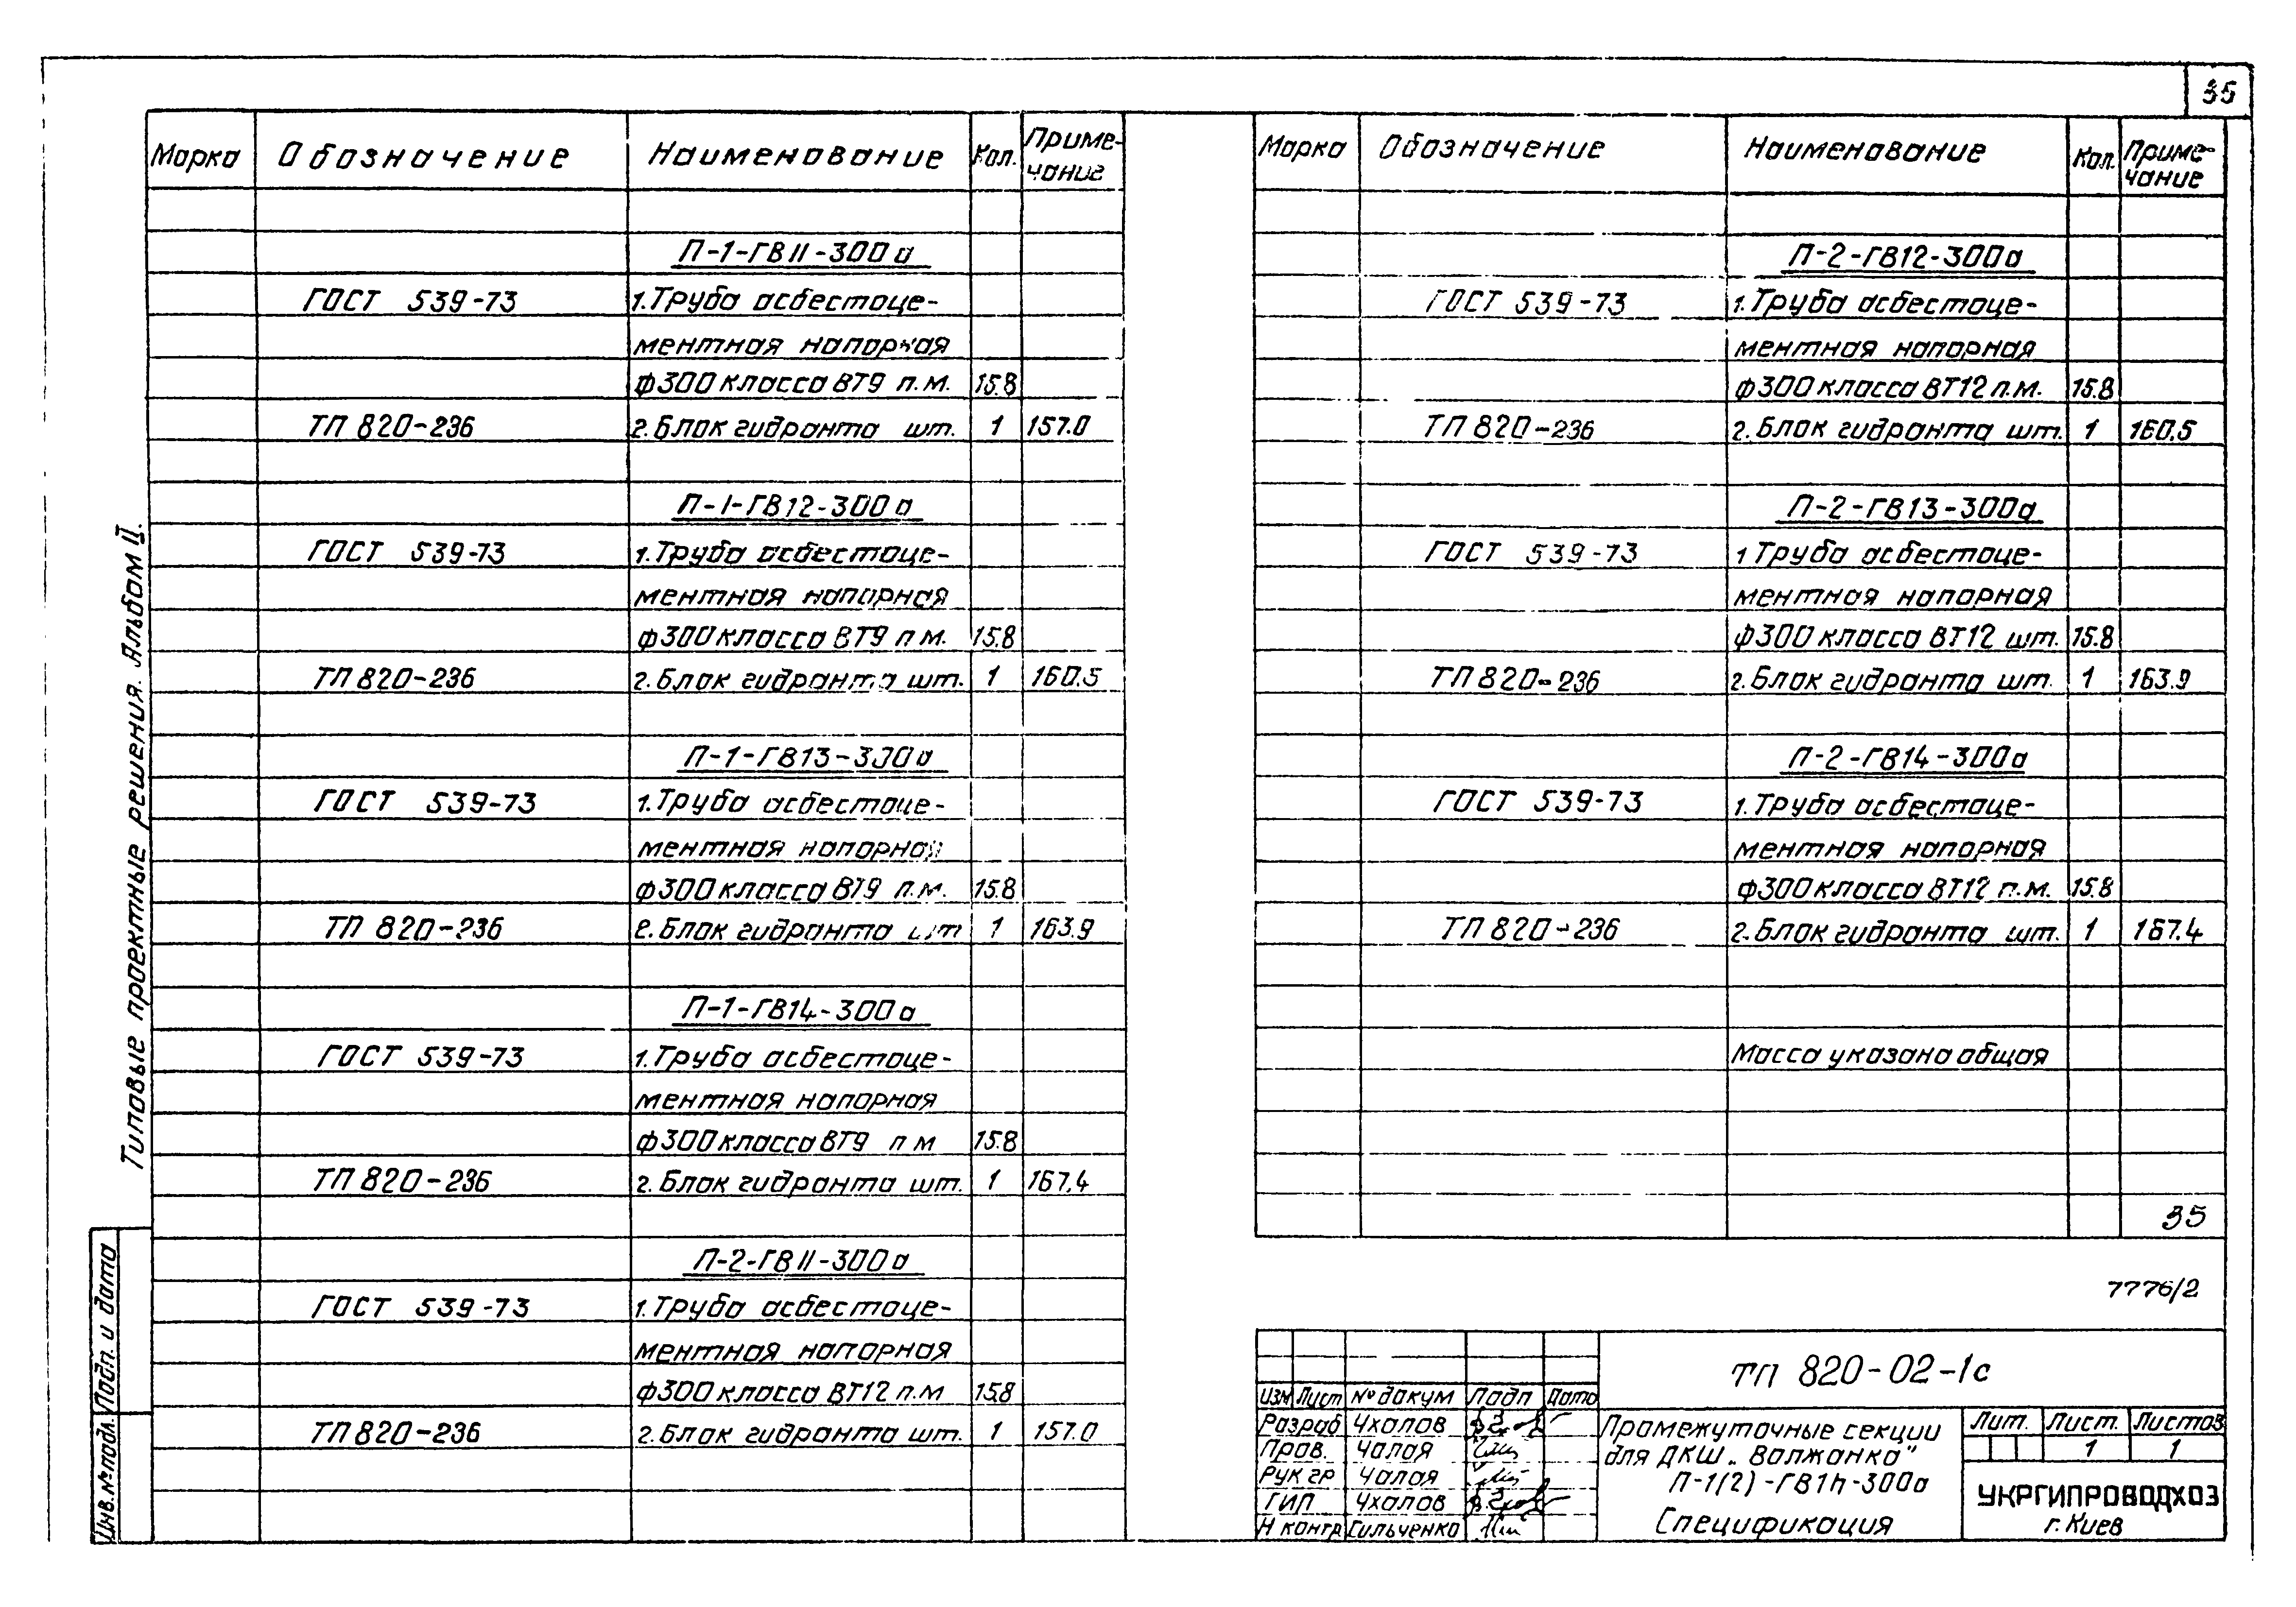 35
Марка Обозначение Наименование Кол. Приме-
чание
П-1-ГВ11-300а
ГОСТ 539-73 1. Труба асбестоце-
ментная напорная
ф300 класса ВТ9 п.м. 15.8
ТП 820-236 2. Блок гидранта шт. 1 157.0
П-1-ГВ12-300а
ГОСТ 539-73 1. Труба асбестоце-
ментная напорная
ф300 класса ВТ9 п.м. 15.8
ТП 820-236 2. Блок гидранта шт. 1 160.5
П-1-ГВ13-300а
ГОСТ 539-73 1. Труба асбестоце-
ментная напорная
ф300 класса ВТ9 п.м. 15.8
ТП 820-236 2. Блок гидранта шт 1 163.9
П-1-ГВ14-300а
ГОСТ 539-73 1. Труба асбестоце-
ментная напорная
ф300 класса ВТ9 п м 15.8
ТП 820-236 2. Блок гидранта шт. 1 167.4
П-2-ГВ11-300а
ГОСТ 539-73 1. Труба асбестоце-
ментная напорная
ф300 класса ВТ12 п.м 15.8
ТП 820-236 2. Блок гидранта шт. 1 157.0
Марка Обозначение Наименование Кол. Приме-
чание
П-2-ГВ12-300а
ГОСТ 539-73 1. Труба асбестоце-
ментная напорная
ф300 класса ВТ12 п.м. 15.8
ТП 820-236 2. Блок гидранта шт. 1 160.5
П-2-ГВ13-300а
ГОСТ 539-73 1 Труба асбестоце-
ментная напорная
ф300 класса ВТ12 шт. 15.8
ТП 820-236 2. Блок гидранта шт. 1 163.9
П-2-ГВ14-300а
ГОСТ 539-73 1. Труба асбестоце-
ментная напорная
ф300 класса ВТ12 п.м. 15.8
ТП 820-236 2. Блок гидранта шт. 1 167.4
Масса указана общая
35
7776/2
Типовые проектные решения. Альбом II.
Подп. и дата
Инв. № подл.
ТП 820-02-1с
Изм Лист № докум Подп Дата
Разраб Чхалов
Пров. Чалая
Рук гр Чалая
ГИП Чхалов
Н контр Сильченко
Промежуточные секции
для ДКШ „Волжанка"
П-1(2)-ГВ1h-300а
Спецификация
Лит. Лист. Листов
1 1
УКРГИПРОВОДХОЗ
г. Киев